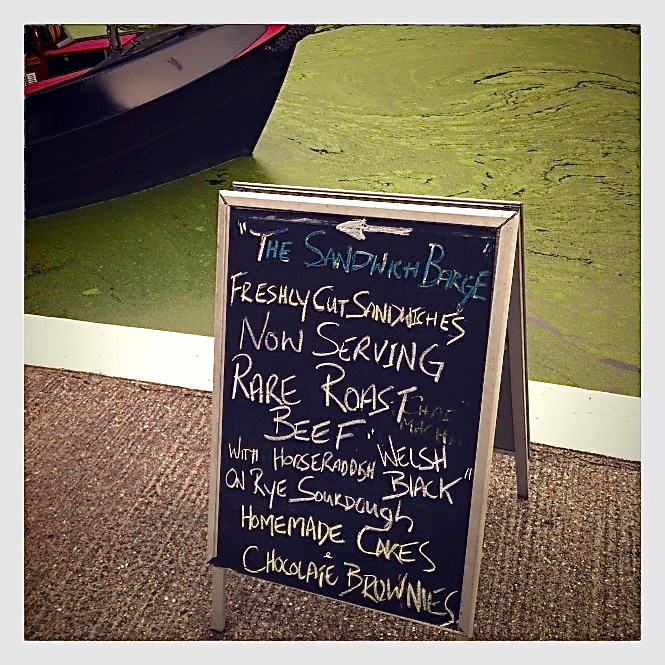 "THE SANDWICH BARGE"
FRESHLY CUT SANDWICHES
NOW SERVING
RARE ROAST
BEEF "WELSH
WITH HORSERADDISH BLACK"
ON RYE SOURDOUGH
HOMEMADE CAKES
&
CHOCOLATE BROWNIES